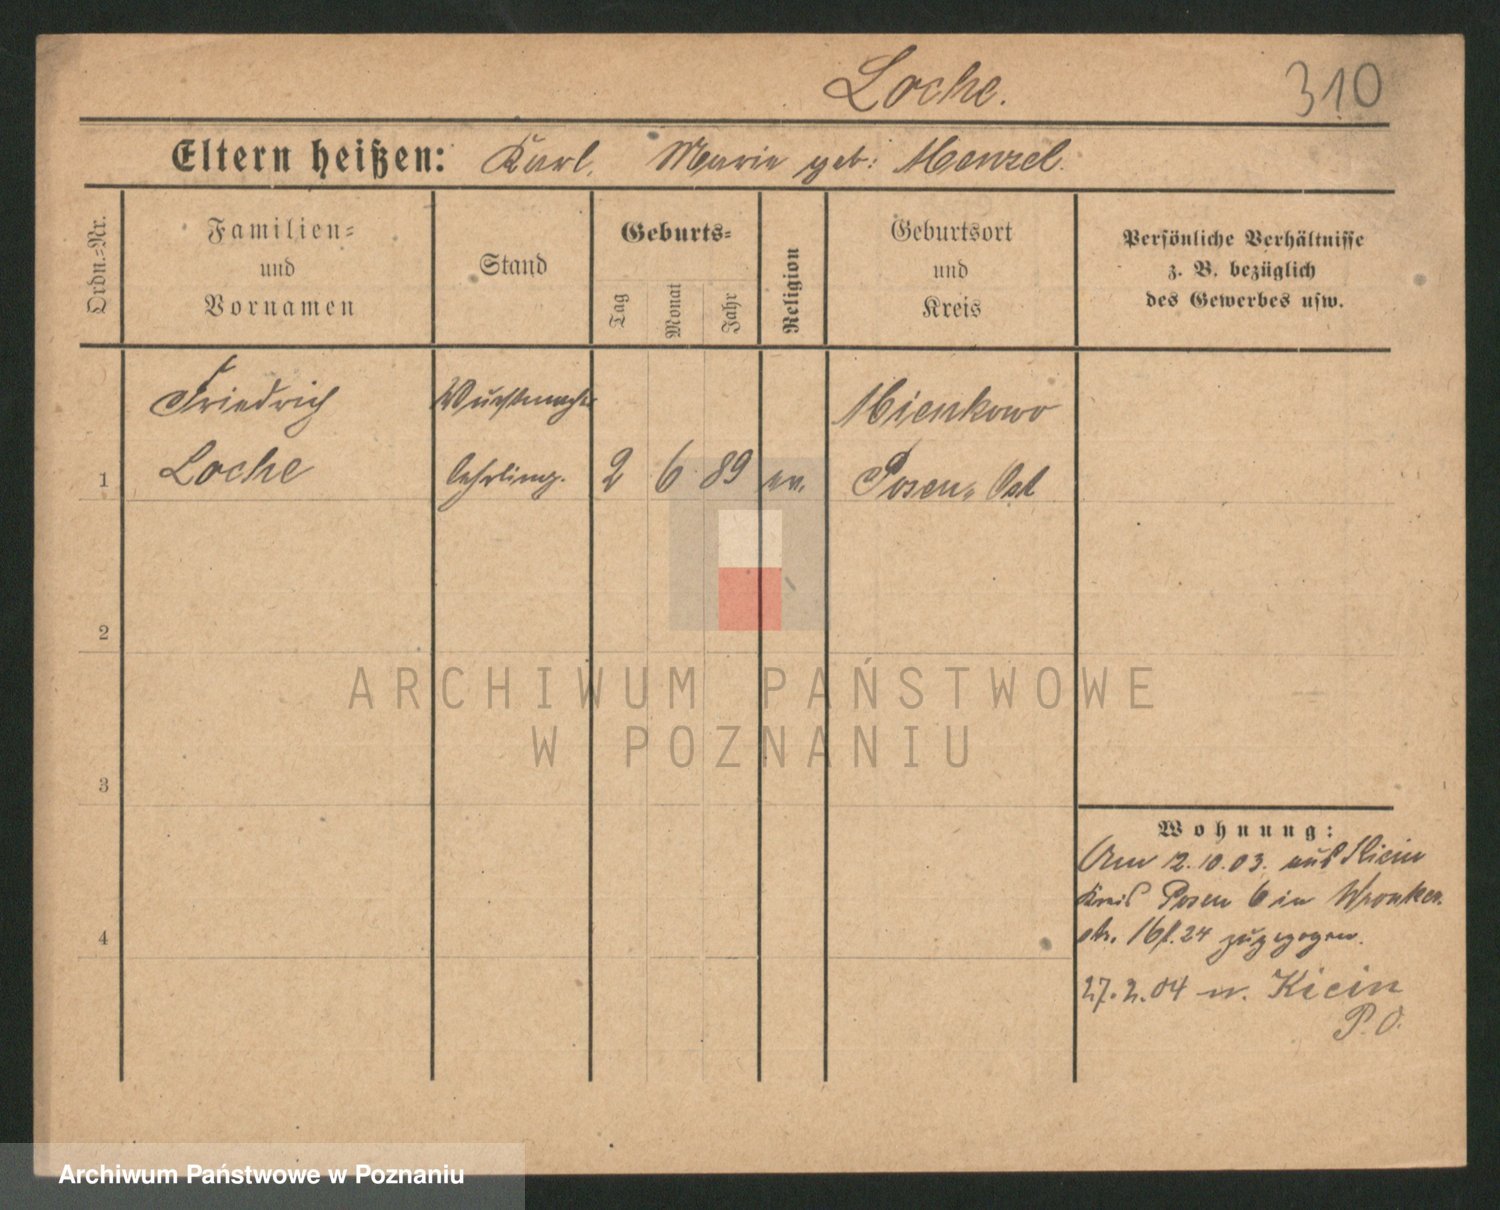 Loche.
310
Eltern heißen: Karl, Marie geb: Menzel.
Ordn.-Nr.
Familien- und Vornamen
Stand
Geburts-
Tag
Monat
Jahr
Religion
Geburtsort und Kreis
Persönliche Verhältnisse
z. B. bezüglich
des Gewerbes usw.
Friedrich
Loche
Wurstmacher
lehrling.
1
2 6 89 ev.
Mienkowo
Posen Ost
2
3
4
Wohnung:
Am 12.10.03. aus Kicin
Kreis Posen O in Wronker
str. 24 zugezogen.
27.2.04 n. Kicin
P.O.
ARCHIWUM PAŃSTWOWE
W POZNANIU
Archiwum Państwowe w Poznaniu